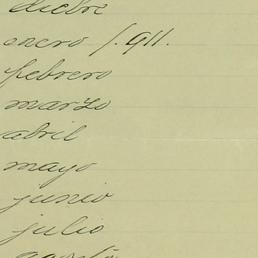 dicbre
enero 1.911.
febrero
marzo
abril
mayo
junio
julio
agosto